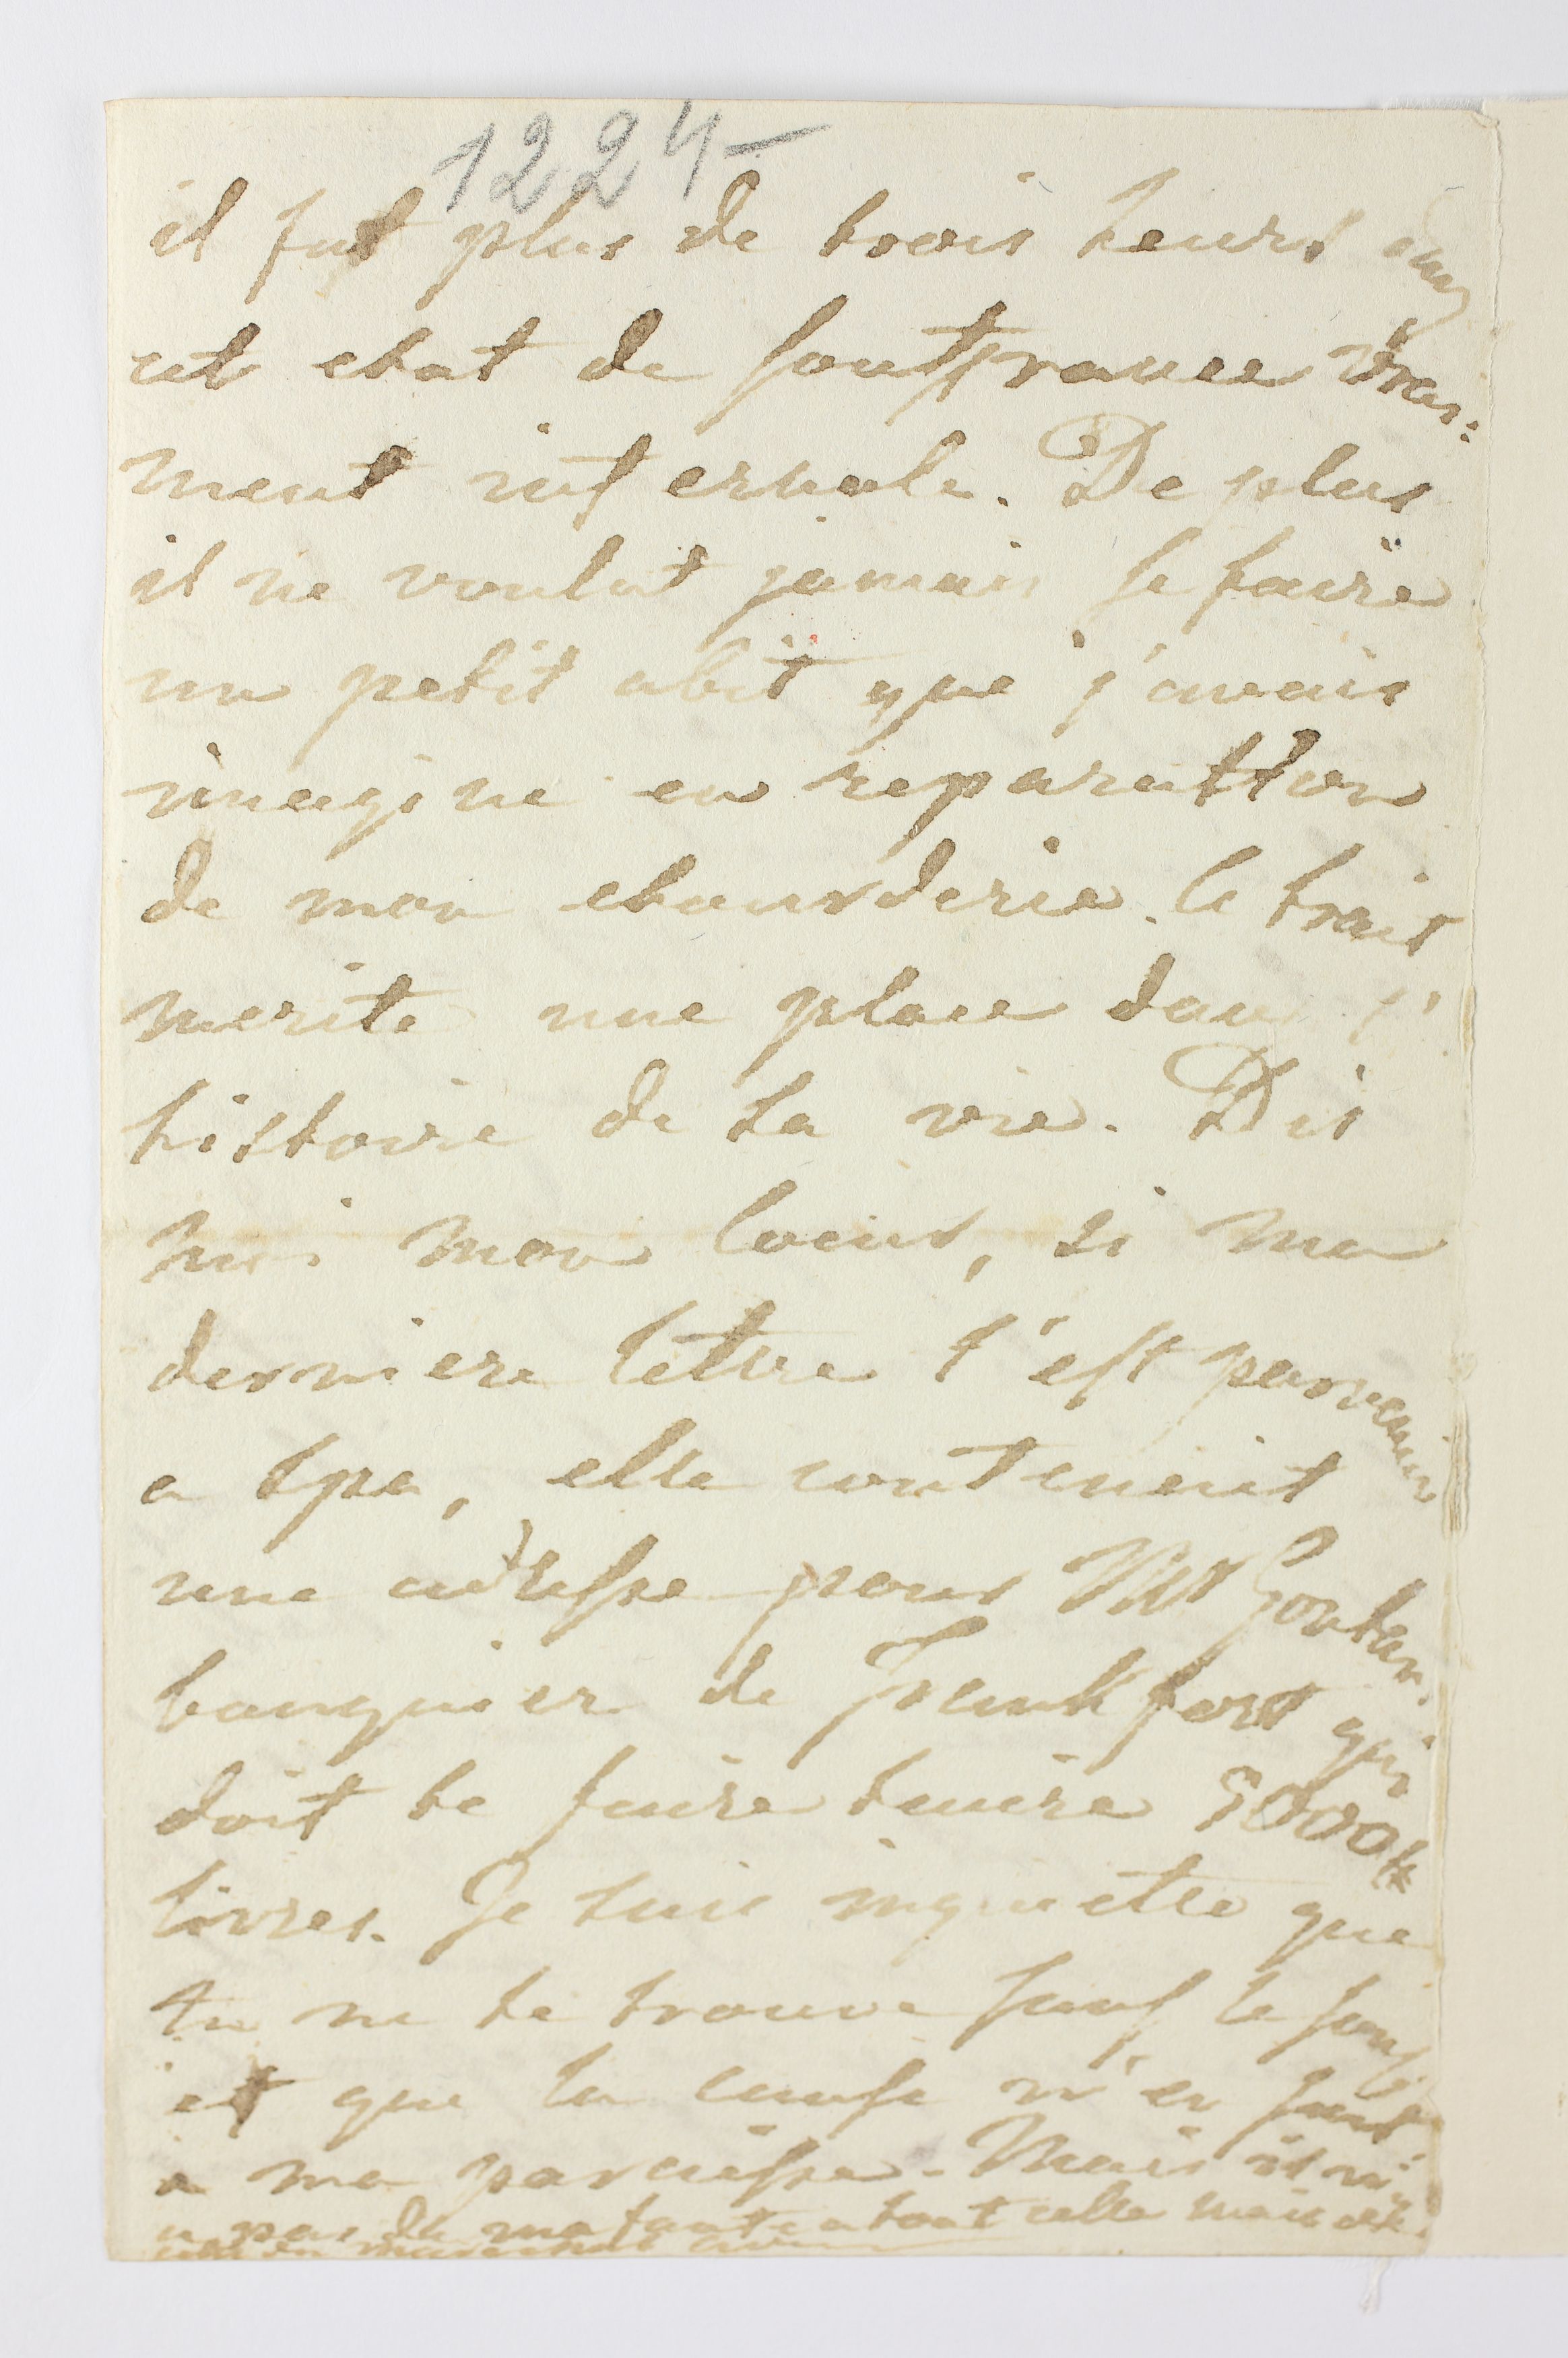 1224
il fut plus de trois heurs dans
cet etat de souffrance vrai:
ment infernale. De plus
il ne voulut jamais se faire
un petit abit que j'avais
imagine en reparattion
de mon etourderie. Ce trait
merite une place dans l'
histoire de ta vie. Dis
moi mon Coeur, si ma
derniere lettre t'est parvenue
a spa, elle contenait
une adresse pour Mr Gontar.
banquier de Frankfort qui
doit te faire tenire 5000tt
livres. Je suis inquiette que
tu ne te trouve sans le sous
et que la cause n'en soit
a ma paresse. Mais il ni
a pas de ma faute a tout celle mais
du marechal